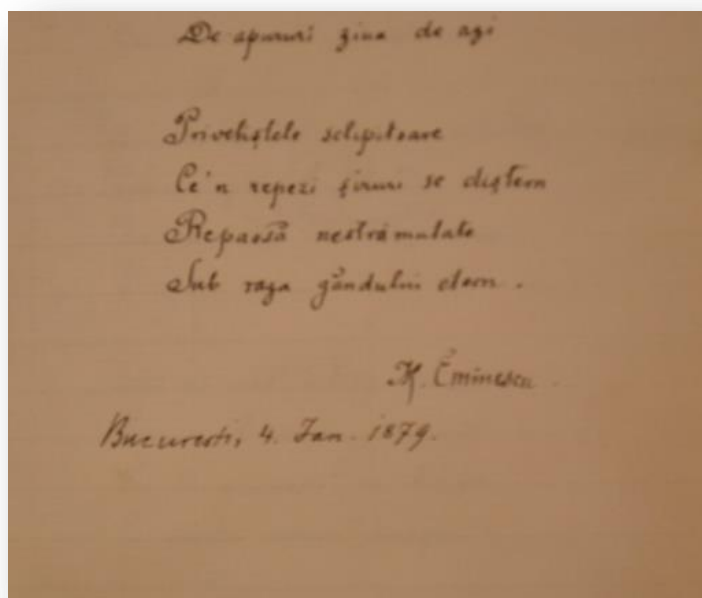 De apururi ziua de azi
Priveliștele sclipitoare
Ce'n repezi șiruri se diștern
Repaosă nestrămutate
Sub raza gândului etern.
M. Eminescu
Bucuresti, 4. Jan. 1879.